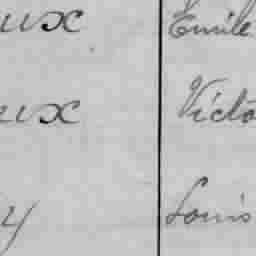 ux Emile
ux Victo
y Louis